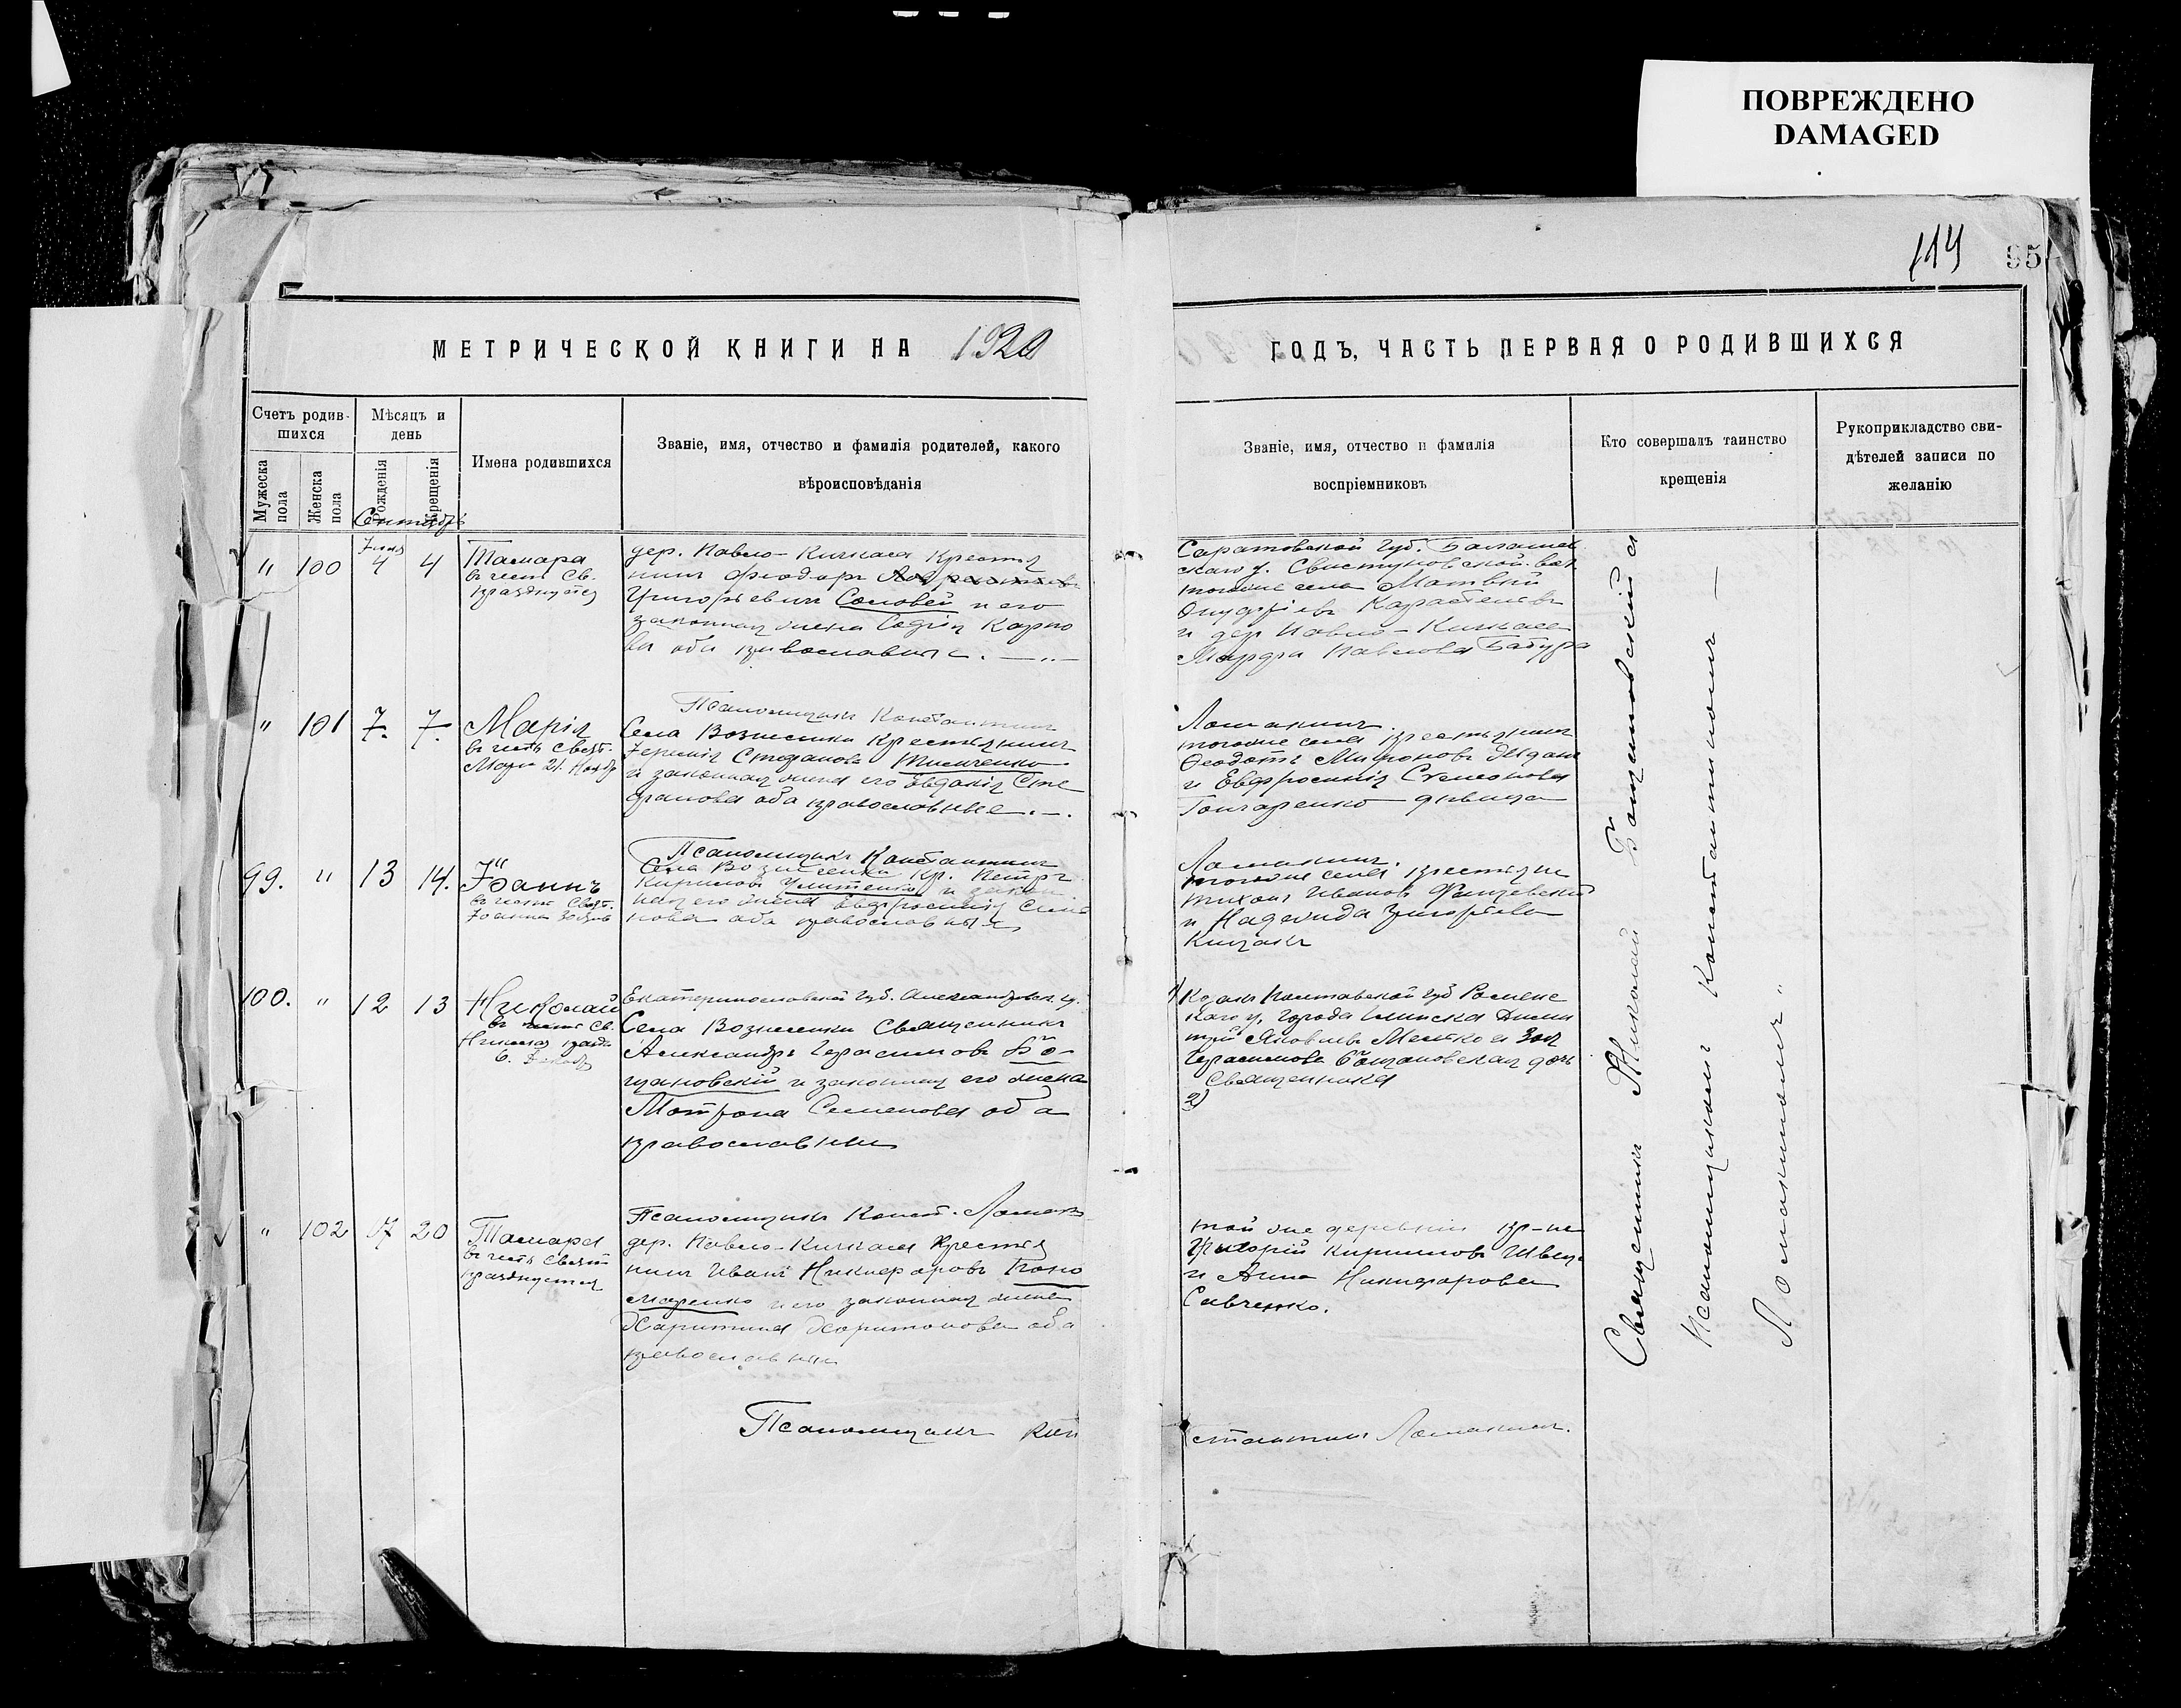 ПОВРЕЖДЕНО
DAMAGED
114
95
МЕТРИЧЕСКОЙ КНИГИ НА 1920
ГОДЪ, ЧАСТЬ ПЕРВАЯ О РОДИВШИХСЯ
Счетъ родив-
шихся
Мужеска
пола
Женска
пола
Мѣсяцъ и
день
Рожденія
Крещенія
Имена родившихся
Званіе, имя, отчество и фамилія родителей, какого
вѣроисповѣданія
Званіе, имя, отчество и фамилія
воспріемниковъ
Кто совершалъ таинство
крещенія
Рукоприкладство сви-
дѣтелей записи по
желанію
Сентябрь
" 100
4 4
Тамара
въ честь Св.
дер. Павло-Кичкаса Крестья
нинъ Феодоръ
Григорьевичъ Соловей и его
законная жена Софія Карпо
ва оба православные.
Саратовской губ. Балашов
скаго у. Свистуновской вол.
тогоже села Матвѣй
Онуфріевъ
и дер Павло-Кичкаса
Марфа Павлова Батура
" 101 7. 7.
Марія
въ честь Свят.
Маріи 21. Ноябр
Псаломщикъ Константинъ
Села Вознесенки Крестьянинъ
Стефановъ Тимченко
и законная жена его Евдокія Сте
фанова оба православные.
Ломакинъ.
тогоже села крестьянинъ
Феодотъ Мироновъ
и Евфросинія Симеонова
Гончаренко дѣвица
99. " 13 14.
Іоаннъ
въ честь Свят.
Псаломщикъ Константинъ
Села Вознесенки Кр. Петръ
Кирилловъ и закон
ная его жена Евфросинія
нова оба православные
Ломакинъ.
тогоже села крестьяне
Тихонъ Ивановъ
и Надежда Григорьева
100. " 12 13
Николай
въ честь Св.
6. Декаб
Екатеринославской губ. Александров. у.
Села Вознесенки Священникъ
Александръ Герасимовъ Бо-
щановскій и законная его жена
Матрона Семенова оба
православные
1) Козакъ Полтавской губ Роменс
каго у. города Глинска Дими
трій Яковлевъ и Зоя
Герасимова Бощановская дочь
Священника
2)
" 102 17 20
Тамара
въ честь Святой
празднуется
Псаломщикъ Конст. Ломак
дер. Павло-Кичкаса Крестья
нинъ Иванъ Никифоровъ Поно
маренко и его законная жена
Харитина Харитонова оба
православные
той же деревни кр-не
Григорій Кирилловъ Швец
и Анна Никифорова
Савченко.
Священникъ Николай Бощановскій и
Псаломщикъ Константинъ
Ломакинъ
Псаломщикъ Кон
стантинъ Ломакинъ.